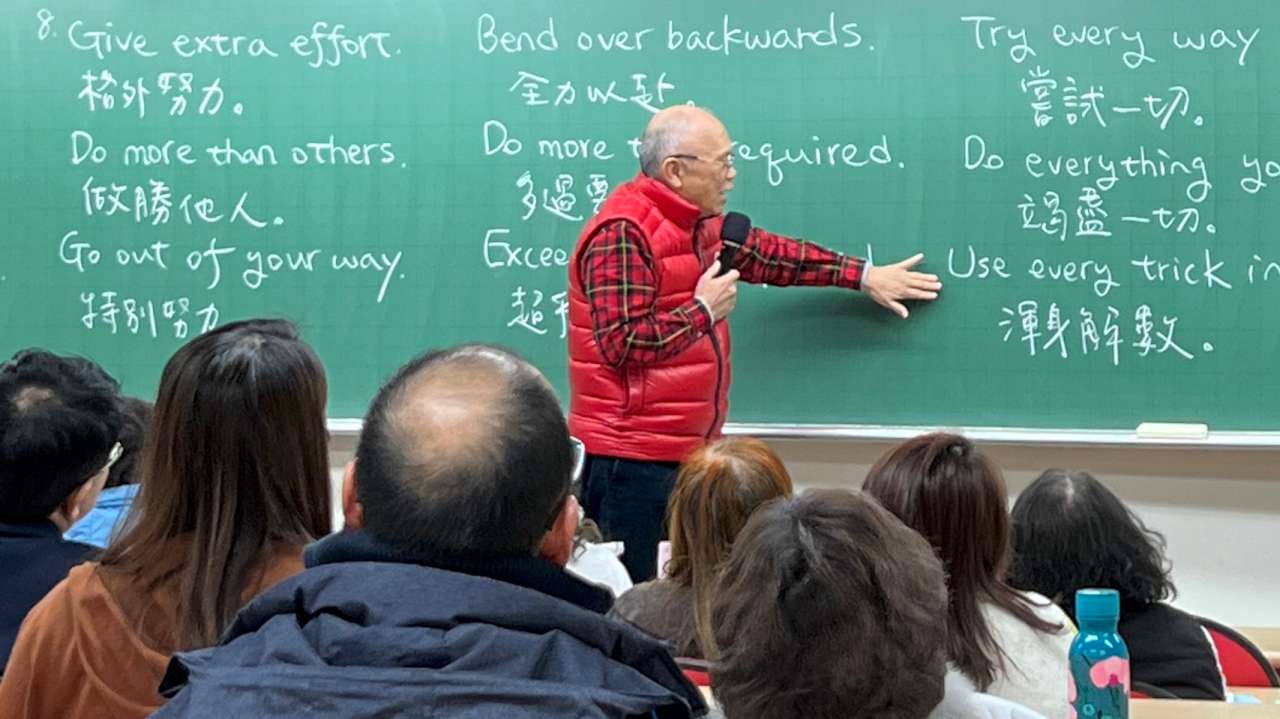 8. Give extra effort.
格外努力。
Do more than others.
做勝他人。
Go out of your way.
特別努力
Bend over backwards.
全力以赴。
Do more required.
多過
超
Try every way
嘗試一切。
Do everything
竭盡一切。
Use every trick in
渾身解數。